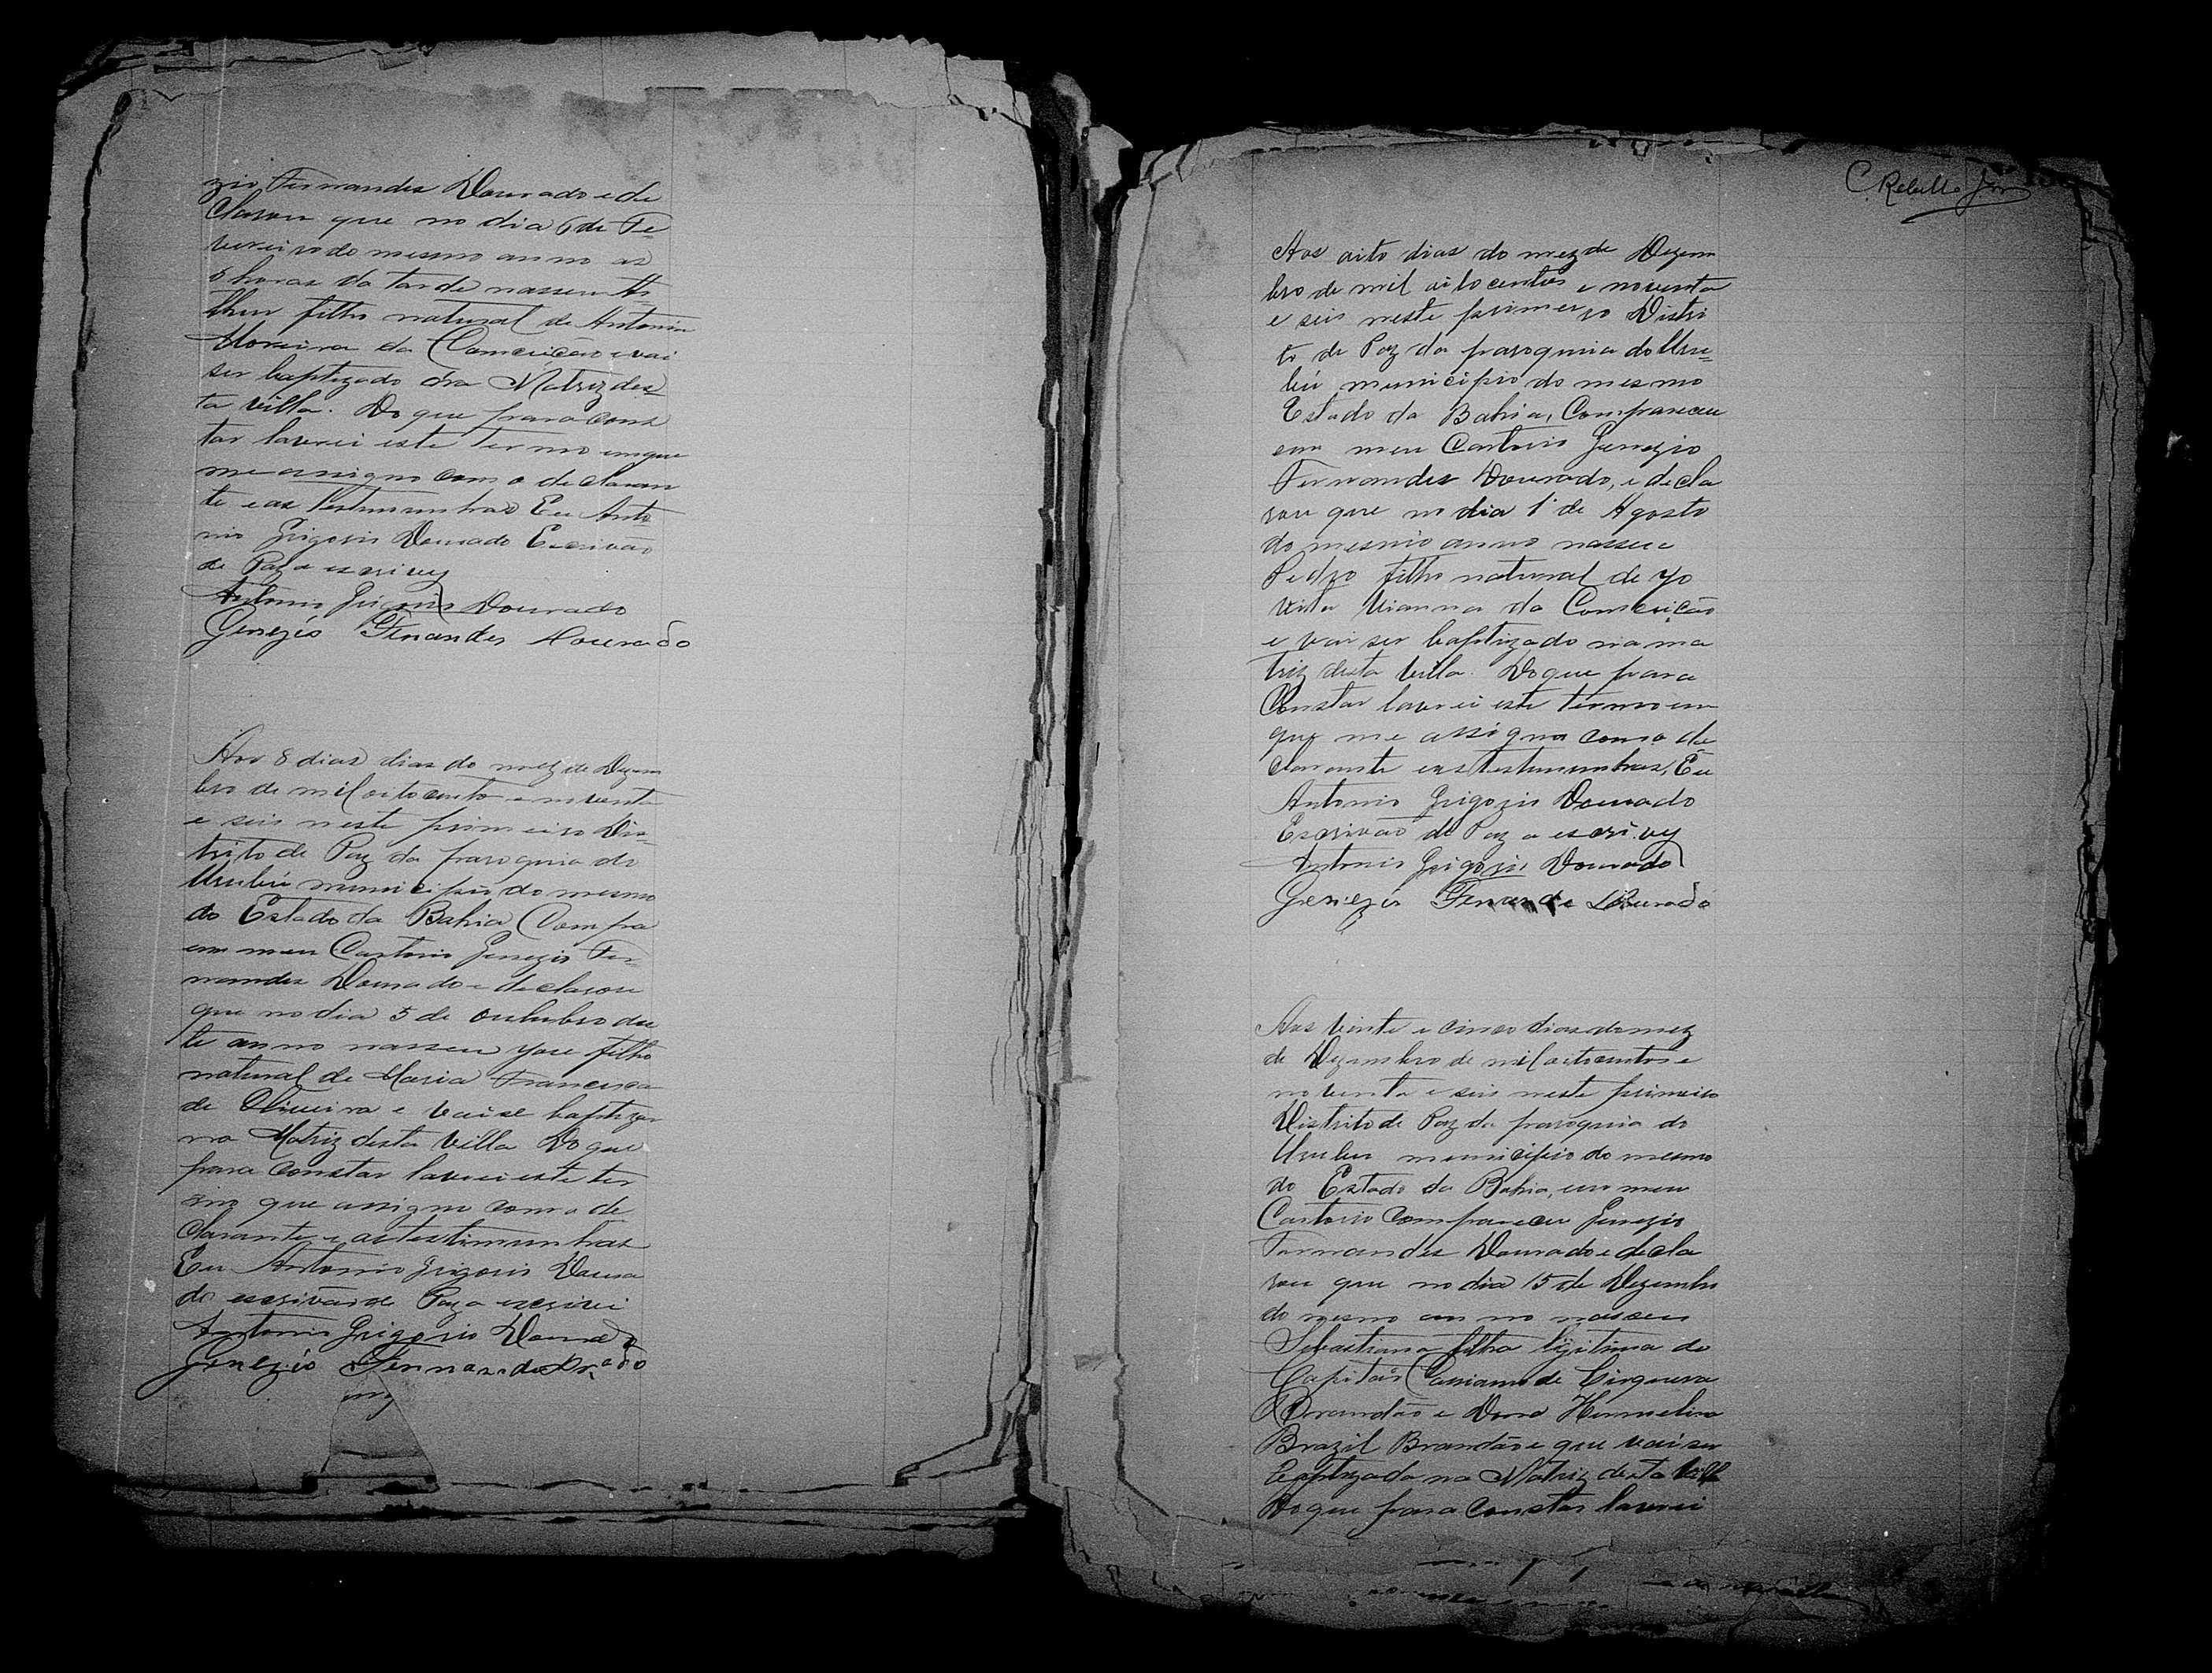 zio Fernandes Dourado e de
clarou que no dia 6 de Fe
vereiro do mesmo anno as
5 horas da tarde nasceu
filho natural de Antonia
Moreira da Conceicão e vai
ser baptizado na Matriz des
ta villa. Do que para cons
tar lavrei este termo em que
me assigno com o declaran
te e as testimunhas Eu Anto
nio Grigorio Dourado Escrivão
de Paz o escrivy
Antonio Grigorio Dourado
Genezio Fernandes Dourado
Aos 8 dias dias do mez de Dezem
bro de mil oitocento e noventa
e seis neste primeiro Dis
trito de Paz da paroquia do
Urubú municipio do mesmo
do Estado da Bahia Compa
em meu Cartorio Genezio Fer
nandes Dourado e declarou
que no dia 5 de Outubro des
te anno nasceu Jose filho
natural de Maria Francisca
de Oliveira e vai se baptizar
na Matriz desta Villa Do que
para Constar lavrei este ter
mo que assigno com o de
clarante e as testimunhas
Eu Antonio Grigorio Doura
do escrivão de Paz o escrivi
Antonio Grigorio Dourado
Genezio
C. Rebello Jor
Aos oito dias do mez de Dezem
bro de mil oitocentos e noventa
e seis neste primeiro Distri
to de Paz da paroquia do Uru
bú municipio do mesmo
Estado da Bahia, Compareceu
em meu Cartorio Genezio
Fernandes Dourado, e decla
rou que no dia 1º de Agosto
do mesmo anno nasceu
Pedro filho natural de Jo
vita Vianna da Conceição
e vai ser baptizado na ma
triz desta villa. Do que para
Constar lavrei este termo em
que me assigno com o de
clarante e as testimunhas, Eu
Antonio Grigorio Dourado
Escrivão de Paz o escrivy
Antonio Grigorio Dourado
Genezio Fernande Dourado
Aos vinte e cinco dias do mez
de Dezembro de mil oitocentos e
noventa e seis neste primeiro
Distrito de Paz da paroquia do
Urubu municipio do mesmo
do Estado da Bahia, em meu
Cartorio Compareceu Genezio
Fernandes Dourado e decla
rou que no dia 15 de Dezembro
do mesmo anno nasceu
Sebastiana filha ligitima do
Capitão Cassiano de Cirqueira
Brandão e Dona Hermelina
Brazil Brandão e que vai ser
baptizada na Matriz desta Villa
Do que para Constar lavrei